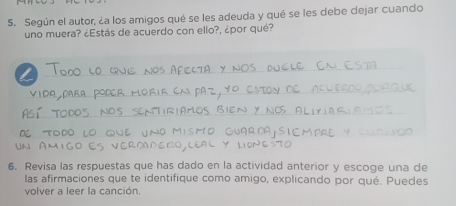 5. Según el autor, ¿a los amigos qué se les adeuda y qué se les debe dejar cuando
uno muera? ¿Estás de acuerdo con ello?, ¿por qué?
TODO LO QUE NOS AFECTA Y NOS DUELE EN ESTA
VIDA, PARA PODER MORIR EN PAZ, YO ESTOY DE ACUERDO PORQUE
ASÍ TODOS NOS SENTIRIAMOS BIEN Y NOS ALIVIARIAMOS
DE TODO LO QUE UNO MISMO GUARDA, SIEMPRE Y CUANDO
UN AMIGO ES VERDADERO, LEAL Y HONESTO
6. Revisa las respuestas que has dado en la actividad anterior y escoge una de
las afirmaciones que te identifique como amigo, explicando por qué. Puedes
volver a leer la canción.